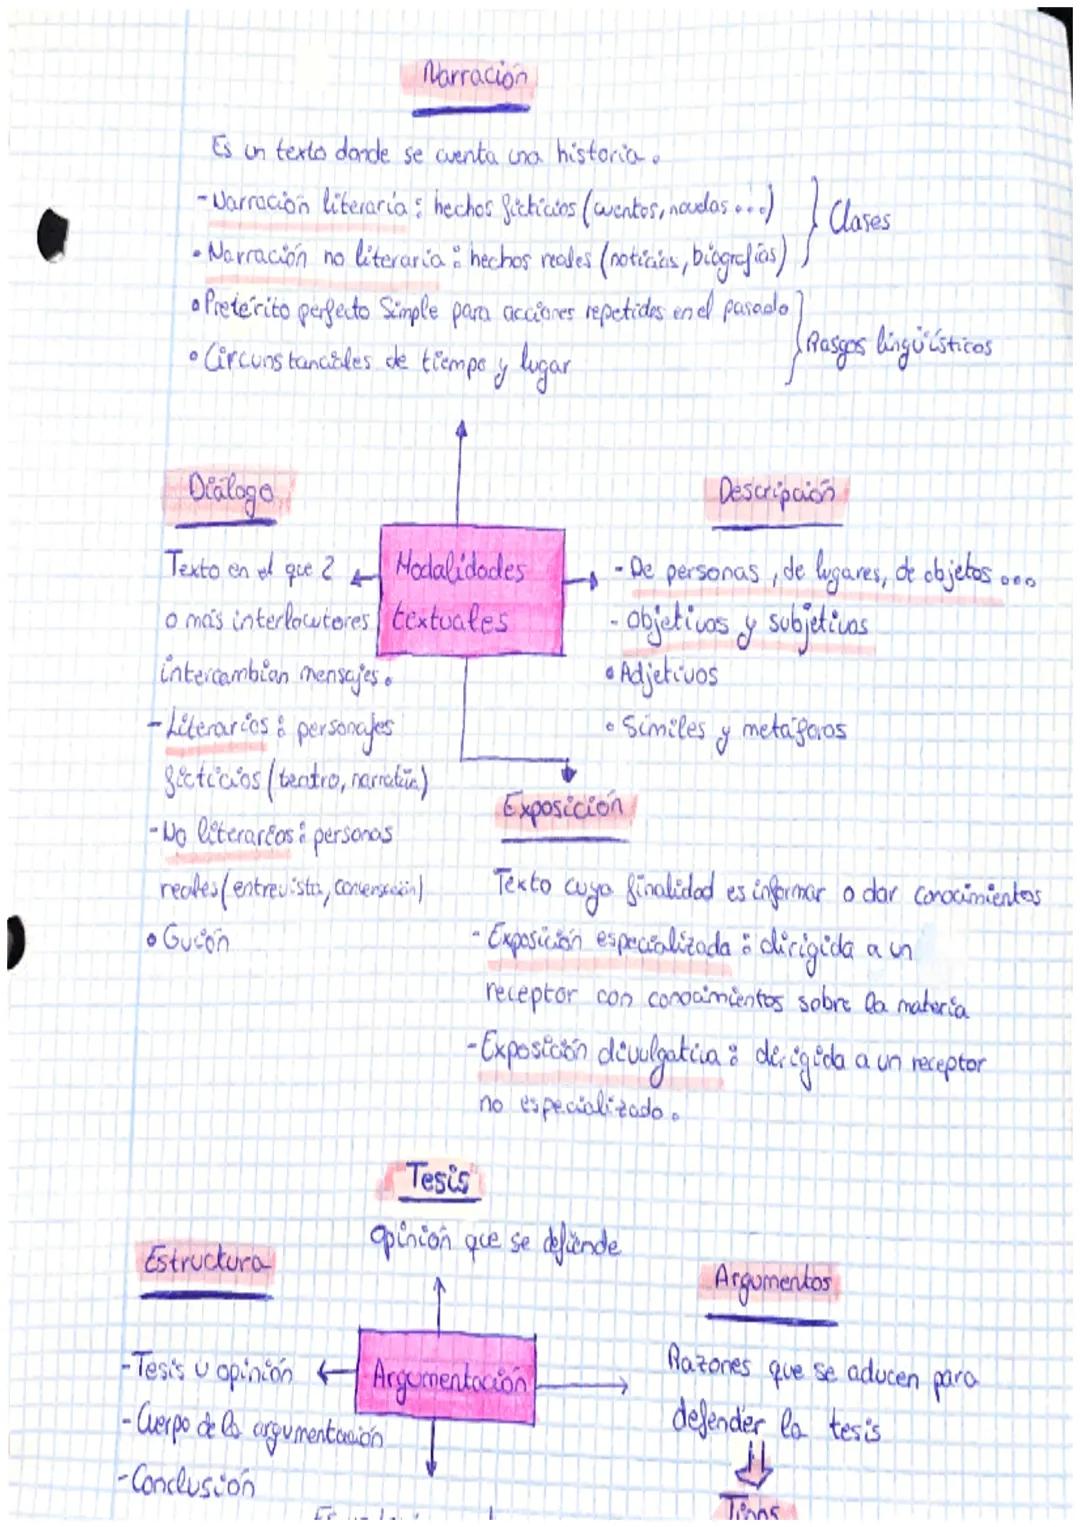 Narración
Es un texto donde se cuenta una historia.
- Narración literaria: hechos ficticios (cuentos, novelas...)
• Narración no literaria: hechos reales (noticias, biografías)
} Clases
• Pretérito perfecto Simple para acciones repetidas en el pasado
• Circunstanciales de tiempo y lugar
} Rasgos lingüísticos
Diálogo
Texto en el que 2
o más interlocutores
intercambian mensajes.
- Literarios: personajes
ficticios (teatro, narrativa)
- No literarios: personas
reales (entrevista, conversación)
• Guión
Modalidades
textuales
Descripción
- De personas, de lugares, de objetos...
- Objetivas y subjetivas
• Adjetivos
• Símiles y metáforas
Exposición
Texto cuya finalidad es informar o dar conocimientos
- Exposición especializada: dirigida a un
receptor con conocimientos sobre la materia
- Exposición divulgativa: dirigida a un receptor
no especializado.
Tesis
Opinión que se defiende
Estructura
- Tesis u opinión
- Cuerpo de la argumentación
- Conclusión
Argumentación
Argumentos
Razones que se aducen para
defender la tesis
Tipos